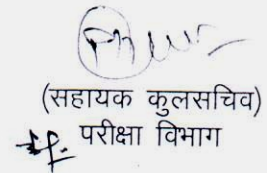 (सहायक कुलसचिव)
परीक्षा विभाग